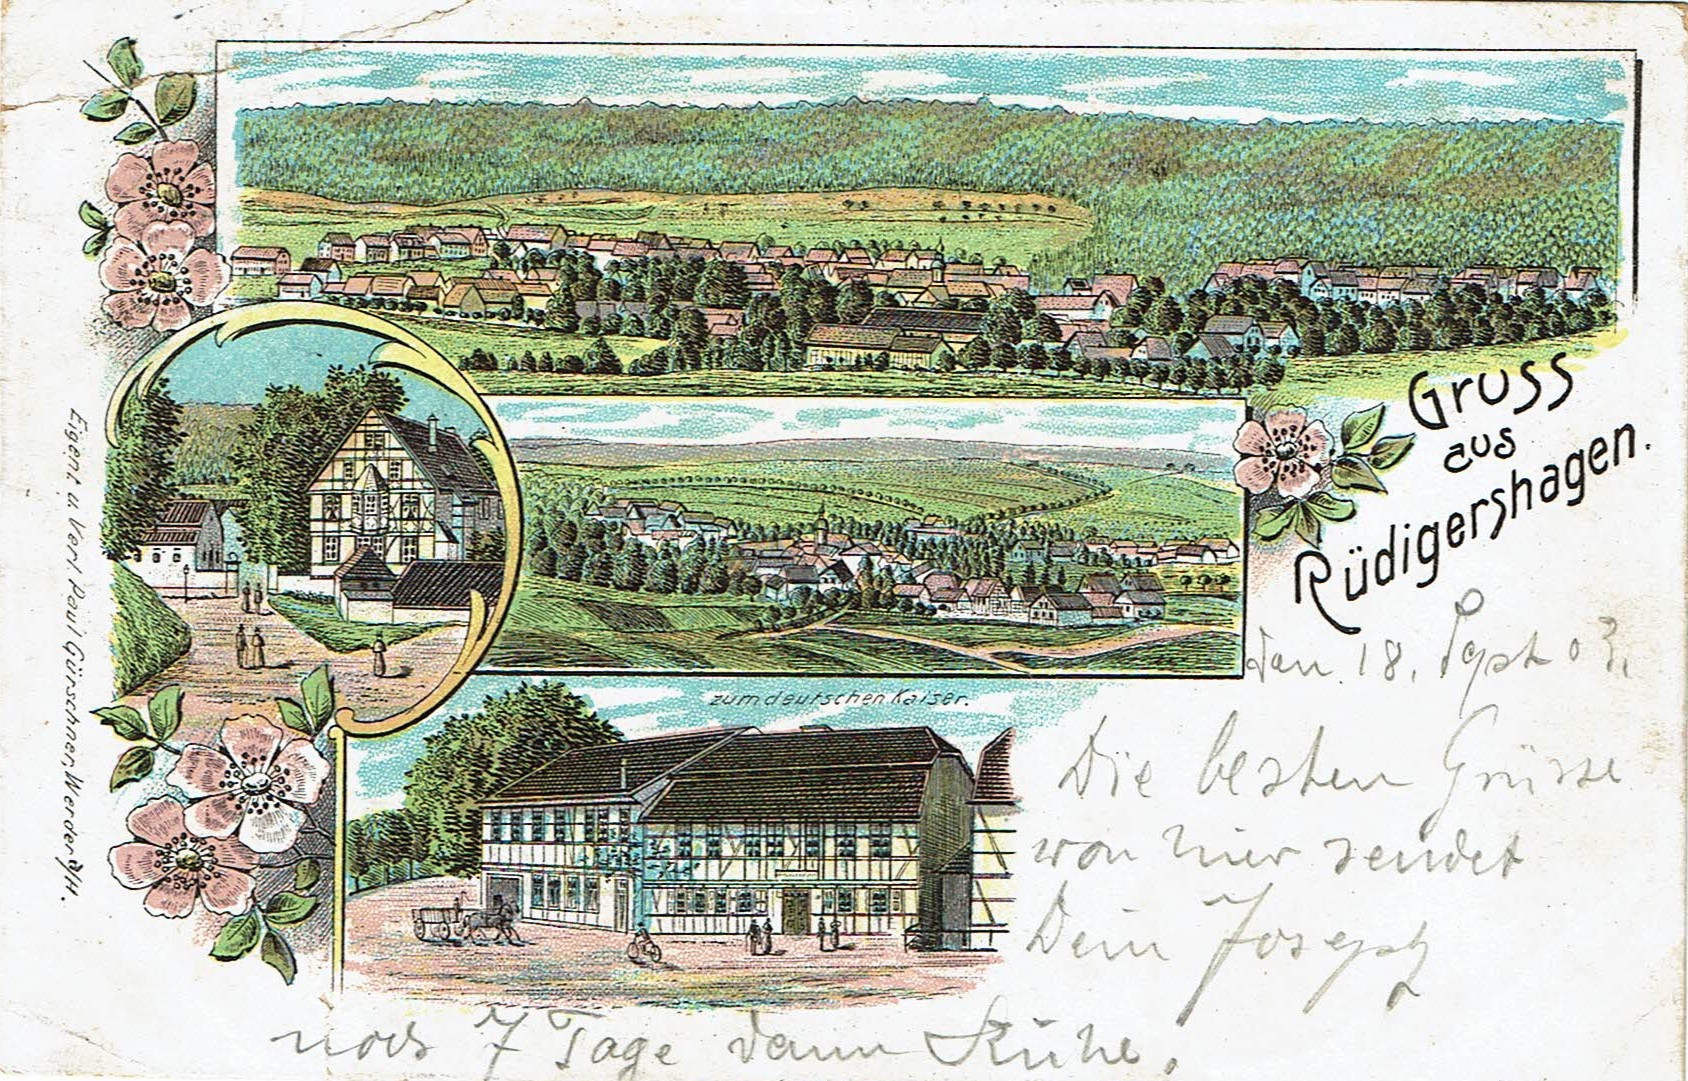 Gruss
aus
Rüdigershagen.
den 18. Sept. 03.
zum deutschen Kaiser.
Die besten Grüsse
von hier sendet
Dein Joseph
noch 7 Tage dann Ruhe.
Eigent. u. Verl. Paul Gürschner, Werder a/H.